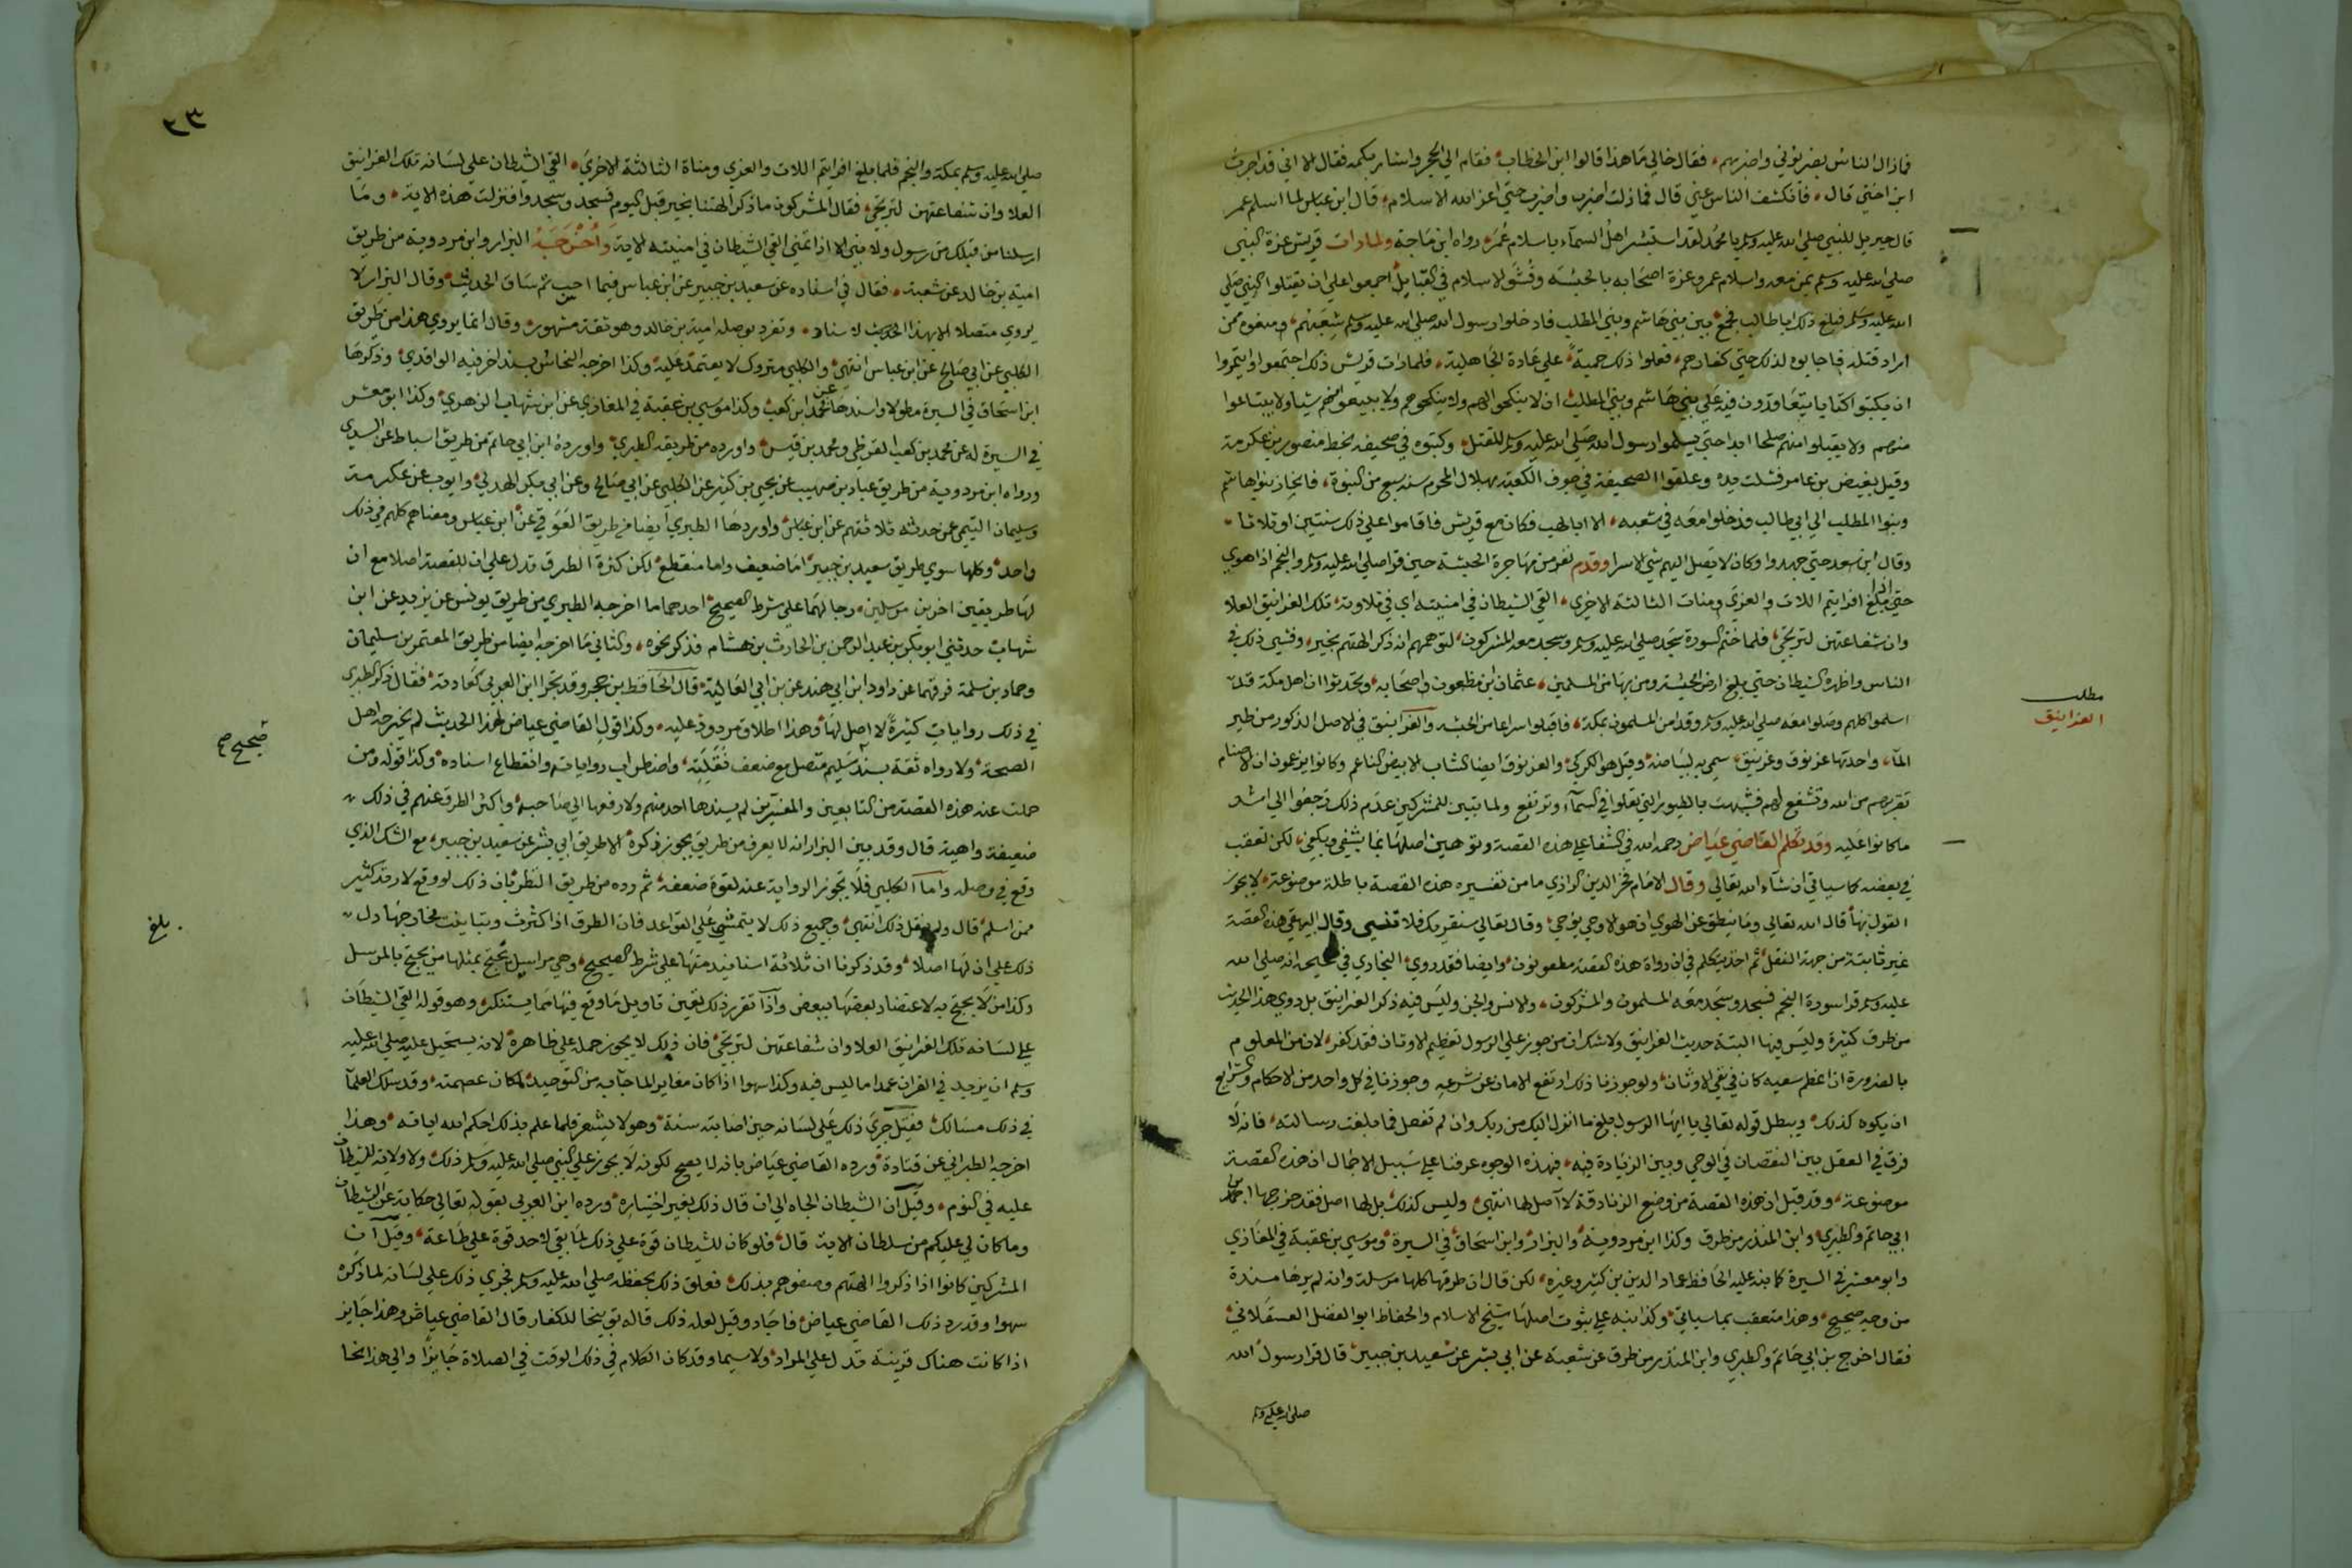 فما زال الناس يضربوني واضربهم، فقال خالي ما هذا قالوا ابن الخطاب، فقام الي الحجر واشار بكمه فقال الا اني قد اجرت
ابن اختي قال، فانكشف الناس عني قال فما زلت اضرب واضرب حتي اعز الله الاسلام، قال ابن عباس لما اسلم عمر
قال جبريل للنبي صلي الله عليه وسلم يا محمد لقد استبشر اهل السمآء باسلام عمر، رواه ابن ماجة ولما رات قريش عزة النبي
صلي الله عليه وسلم بمن معه واسلام عمر وعزة اصحابه بالحبشه وفشو الاسلام في القبايل اجمعوا علي ان يقتلوا النبي صلي
الله عليه وسلم فبلغ ذلك ابا طالب فجمع بين بني هاشم وبني المطلب فادخلوا رسول الله صلي الله عليه وسلم شعبهم، ومنعوه ممن
اراد قتله فاجابوه لذلك حتي كفارهم، فعلوا ذلك حمية، علي عادة الجاهلية، فلما رات قريش ذلك اجتمعوا وايتمروا
ان يكتبوا كتابا يتعاقدون فيه علي بني هاشم وبني المطلب ان لا ينكحوا اليهم ولا ينكحوهم ولا يبيعوا منهم شيا ولا يبتاعوا
منهم ولا يقبلوا منهم صلحا ابدا حتي يسلموا رسول الله صلي الله عليه وسلم للقتل، وكتبوه في صحيفه بخط منصور بن عكرمة
وقيل بغيض بن عامر فشلت يده وعلقوا الصحيفة في جوف الكعبة بهلال المحرم سنه سبع من النبوة، فانحاز بنوا هاشم
وبنوا المطلب الي ابي طالب فدخلوا معه في شعبه، الا ابا لهب فكان مع قريش فاقاموا علي ذلك سنتين او ثلاثا
وقال ابن سعد حتي جهدوا وكان لا يصل اليهم شي الا سرا وقدم نفر من مهاجرة الحبشة حين قرا صلي الله عليه وسلم والنجم اذا هوي
حتي بلغ افرايتم اللات والعزي ومنات الثالثة الاخري، القي الشيطان في امنيته اي في تلاوته، تلك الغرانيق العلا
وان شفاعتهن لترتجي، فلما ختم السورة سجد صلي الله عليه وسلم وسجد معه المشركون، لتوهمهم انه ذكر الهتهم بخير، وفشي ذلك في
الناس واظهره الشيطان حتي بلغ ارض الحبشة ومن بها من المسلمين، عثمان ابن مظعون واصحابه، وتحدثوا ان اهل مكة قد
اسلموا كلهم وصلوا معه صلي الله عليه وسلم وقد امن المسلمون بمكة، فاقبلوا سراعا من الحبشه والغرانيق في الاصل الذكور من طير
المآء، واحدتها غرنوق وغرنيق، سمي به لبياضه، وقيل هو الكركي، والغرنوق ايضا الشاب الابيض الناعم وكانوا يزعمون ان الاصنام
تقربهم من الله وتشفع لهم فشبهت بالطيور التي تعلوا في السمآء وترتفع ولما تبين للمشركين عدم ذلك رجعوا الي اشد
ما كانوا عليه وقد تكلم القاضي عياض رحمه الله في الشفا علي هذه القصة وتوهين اصلها بما يشفي ويكفي، لكن تعقب
في بعضه كما سياتي ان شآء الله تعالي وقال الامام فخر الدين الرازي مما من تفسيره هذه القصة باطلة موضوعة، لا يجوز
القول بها قال الله تعالي وما ينطق عن الهوي ان هو الا وحي يوحي، وقال تعالي سنقريك فلا تنسي وقال البيهقي هذه القصة
غير ثابتة من جهة النقل، ثم اخذ يتكلم في ان رواة هذه القصة مطعونون، وايضا فقد روي البخاري في صحيحه انه صلي الله
عليه وسلم قرا سورة النجم فسجد وسجد معه المسلمون والمشركون، والانس والجن وليس فيه ذكر الغرانيق بل روي هذا الحديث
من طرق كثيرة وليس فيها البتة حديث الغرانيق ولا شك ان من جوز علي الرسول تعظيم الاوثان فقد كفر، لان من المعلوم
بالضرورة ان اعظم سعيه كان في نفي الاوثان، ولو جوزنا ذلك ارتفع الامان عن شرعه وجوزنا في كل واحد من الاحكام والشرايع
ان يكون كذلك، ويبطل قوله تعالي يا ايها الرسول بلغ ما انزل اليك من ربك وان لم تفعل فما بلغت رسالته، فانه لا
فرق في العقل بين النقصان في الوحي وبين الزيادة فيه، فبهذه الوجوه عرفنا علي سبيل الاجمال ان هذه القصة
موضوعة، وقد قيل ان هذه القصة من وضع الزنادقة لا اصل لها انتهي، وليس كذلك، بل لها اصل فقد خرجها ابن
ابي حاتم والطبري وابن المنذر من طرق وكذا ابن مردوية، والبزار، وابن اسحاق، في السيرة، وموسي بن عقبة في المغازي
وابو معشر في السيرة كما نبه عليه الحافظ عماد الدين بن كثير وغيره، لكن قال ان طرقها كلها مرسلة وانه لم يرها مسندة
من وجه صحيح، وهذا متعقب بما سياتي، وكذا نبه علي ثبوت اصلها شيخ الاسلام والحفاظ ابوا الفضل العسقلاني،
فقال اخرج بن ابي حاتم والطبري وابن المنذر من طرق عن شعبة عن ابي بشر عن سعيد بن جبير، قال قرا رسول الله
صلي الله عليه وسلم
مطلب
الغرانيق
٢٣
صلي الله عليه وسلم بمكة والنجم فلما بلغ افرايتم اللات والعزي ومناة الثالثة الاخري، القي الشيطان علي لسانه تلك الغرانيق
العلا وان شفاعتهن لترتجي، فقال المشركون ما ذكر الهتنا بخير قبل اليوم فسجد وسجدوا فنزلت هذه الاية، وما
ارسلنا من قبلك من رسول ولا نبي الا اذا تمني القي الشيطان في امنيته الاية واخرجه البزار وابن مردوية من طريق
امية بن خالد عن شعبة، فقال في اسناده عن سعيد بن جبير عن ابن عباس فيما احسب ثم ساق الحديث، وقال البزار لا
يروي متصلا الا بهذا الاسناد، وتفرد بوصله امية بن خالد وهو ثقة مشهور، وقال انما يروي هذا من طريق
الكلبي عن ابي صالح عن ابن عباس انتهي، والكلبي متروك لا يعتمد عليه، وكذا اخرجه النحاس بسند اخر فيه الواقدي، وذكرها
ابن اسحاق في السيرة مطولا واسندها عن محمد ابن كعب، وكذا موسي بن عقبة في المغازي عن ابن شهاب الزهري، وكذا ابو معشر
في السيرة له عن محمد بن كعب القرظي ومحمد بن قيس، واورده من طريقه الطبري، واورده ابن ابي حاتم من طريق اسباط عن السدي
ورواه ابن مردوية من طريق عباد بن صهيب عن يحيي بن كثير عن الكلبي عن ابي صالح وعن ابي بكر الهذلي، وايوب عن عكرمة
وسليمان التيمي عمن حدثه ثلاثتهم عن ابن عباس، واوردها الطبري ايضا من طريق العوفي عن ابن عباس ومعناهم كلهم في ذلك
واحد، وكلها سوي طريق سعيد بن جبير، اما ضعيف واما منقطع، لكن كثرة الطرق تدل علي ان للقصة اصلا مع ان
لها طريقين اخرين مرسلين، رجالهما علي شرط الصحيح، احدهما ما اخرجه الطبري من طريق يونس عن يزيد عن ابن
شهاب حدثني ابو بكر بن عبد الرحمن بن الحارث بن هشام فذكر نحوه، والثاني ما اخرجه ايضا من طريق المعتمر بن سليمان
وحماد بن سلمة فرقهما عن داود ابن ابي هند عن ابي العالية، قال الحافظ بن حجر وقد تجرا ابن العربي كعادته، فقال ذكر الطبري
في ذلك روايات كثيرة لا اصل لها، وهذا اطلاق مردود عليه، وكذا قول القاضي عياض هذا الحديث لم يخرجه اهل
الصحة، ولا رواه ثقة بسند سليم متصل مع ضعف نقلته، واضطراب رواياته وانقطاع اسناده، وكذا قوله ومن
حملت عنه هذه القصة من التابعين والمفسرين لم يسندها احد منهم ولا رفعها الي صاحبه، واكثر الطرق عنهم في ذلك
ضعيفة واهية قال وقد بين البزار انه لا يعرف من طريق يجوز ذكره، الا طريق ابي بشر عن سعيد بن جبير، مع الشك الذي
وقع في وصله واما الكلبي فلا تجوز الرواية عنه لقوة ضعفه، ثم رده من طريق النظر بان ذلك لو وقع لارتد كثير
ممن اسلم، قال ولم ينقل ذلك انتهي، وجميع ذلك لا يتمشي علي القواعد فان الطرق اذا كثرت وتباينت مخارجها دل
ذلك علي ان لها اصلا، وقد ذكرنا ان ثلاثة اسانيد منها علي شرط الصحيح، وهي مراسيل يحتج بمثلها من يحتج بالمرسل
وكذا من لا يحتج به لاعتضاد بعضها ببعض واذا تقرر ذلك تعين تاويل ما وقع فيها مما يستنكر، وهو قوله القي الشيطان
علي لسانه تلك الغرانيق العلا وان شفاعتهن لترتجي، فان ذلك لا يجوز حمله علي ظاهره، لانه يستحيل عليه صلي الله عليه
وسلم ان يزيد في القران عمدا ما ليس فيه وكذا سهوا اذا كان مغايرا لما جآ به من التوحيد، لمكان عصمته، وقد سلك العلمآ
في ذلك مسالك، فقيل جري ذلك علي لسانه حين اصابته سنة، وهو لا يشعر فلما علم بذلك احكم الله اياته، وهذا
اخرجه الطبراني عن قتادة، ورده القاضي عياض بانه لا يصح لكونه لا يجوز علي النبي صلي الله عليه وسلم ذلك، ولا ولاية للشيطان
عليه في النوم، وقيل ان الشيطان الجاه الي ان قال ذلك بغير اختياره، ورده ابن العربي بقوله تعالي حكاية عن الشيطان
وما كان لي عليكم من سلطان الاية، قال، فلو كان للشيطان قوة علي ذلك لما بقي لاحد قوة علي طاعة، وقيل ان
المشركين كانوا اذا ذكروا الهتهم وصفوهم بذلك، فعلق ذلك بحفظه صلي الله عليه وسلم فجري ذلك علي لسانه لما ذكره
سهوا وقد رد ذلك القاضي عياض، فاجاد وقيل لعله ذلك قاله توبيخا للكفار قال القاضي عياض وهذا جايز
اذا كانت هناك قرينة تدل علي المراد، ولا سيما وقد كان الكلام في ذلك الوقت في الصلاة جايزا والي هذا نحا
صحيح صح
بلغ